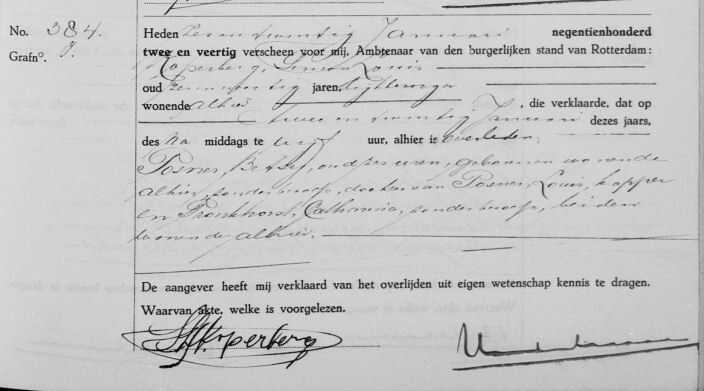 No. 384. Heden zeven twintig Januari negentienhonderd
Grafno. J. twee en veertig verscheen voor mij, Ambtenaar van den burgerlijken stand van Rotterdam:
Koperberg, Simon Louis
oud zeven veertig jaren, lijkbezorger
wonende alhier, die verklaarde, dat op
twee en twintig Januari dezes jaars,
des na middags te vijf uur, alhier is overleden:
Posner, Betsy, oud uren, geboren en wonende
alhier, zonder beroep, dochter van Posner, Louis, kapper
en Bronkhorst, Catharina, zonder beroep, beiden
wonende alhier.
De aangever heeft mij verklaard van het overlijden uit eigen wetenschap kennis te dragen.
Waarvan akte, welke is voorgelezen.
Koperberg